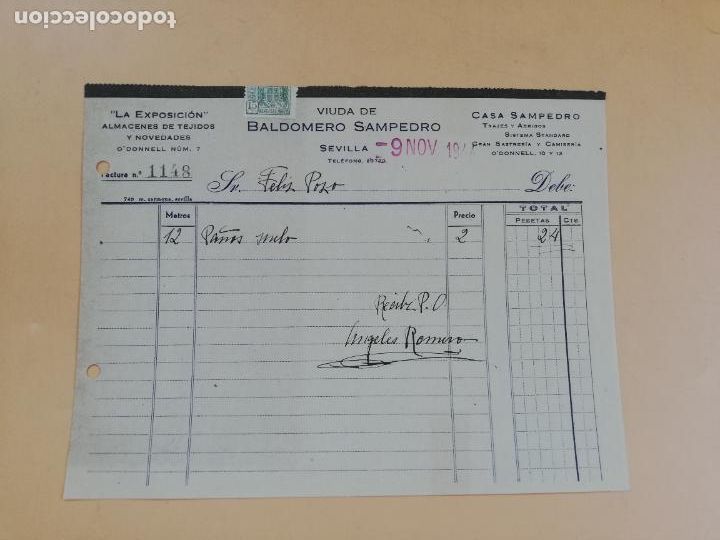 todocoleccion.net
"LA EXPOSICIÓN"
ALMACENES DE TEJIDOS
Y NOVEDADES
O'DONNELL NÚM. 7
15
VIUDA DE
BALDOMERO SAMPEDRO
SEVILLA
-9 NOV 194
TELÉFONO,
CASA SAMPEDRO
TRAJES Y ABRIGOS
SISTEMA STANDARD
GRAN SASTRERÍA Y CAMISERÍA
O'DONNELL, 10 Y 12
Factura n.º 1148
Sr. Felix Pozo
Debe:
749 m. carmona, sevilla
Metros
Precio
TOTAL
PESETAS
CTS
12 Paños suelo 2 24
Recibí P.O.
Angeles Romero